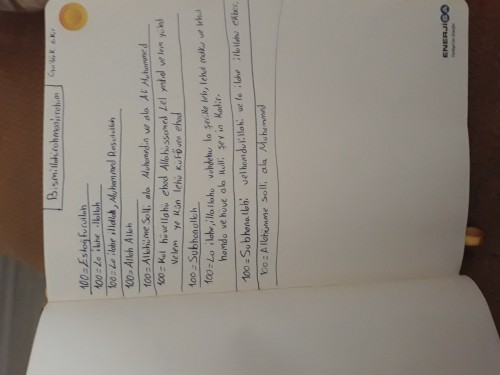 Günlük zikir
Bismillahirrahmanirrahim
100= Estağfirullah
100= La ilahe illallah
100= La ilahe illallah, Muhammed Resulullah
100= Allah Allah
100= Allahümme Salli ala Muhammedin ve ala Ali Muhammed
100= Kul hüvellahu ehad Allahüssamed Lel yelid velem yuled
Velem ye kün lehü Kufüven ehad
100= Subhanallah
100= La ilahe illallahu vahdehu la şerike leh, lehul mulku ve lehul
hamdu ve huve ala Kulli şey in Kadir.
100= Subhanallahi velhamdulillahi ve la ilahe illallahu ekber.
100= Allahümme salli ala Muhammed
ENERJİSA